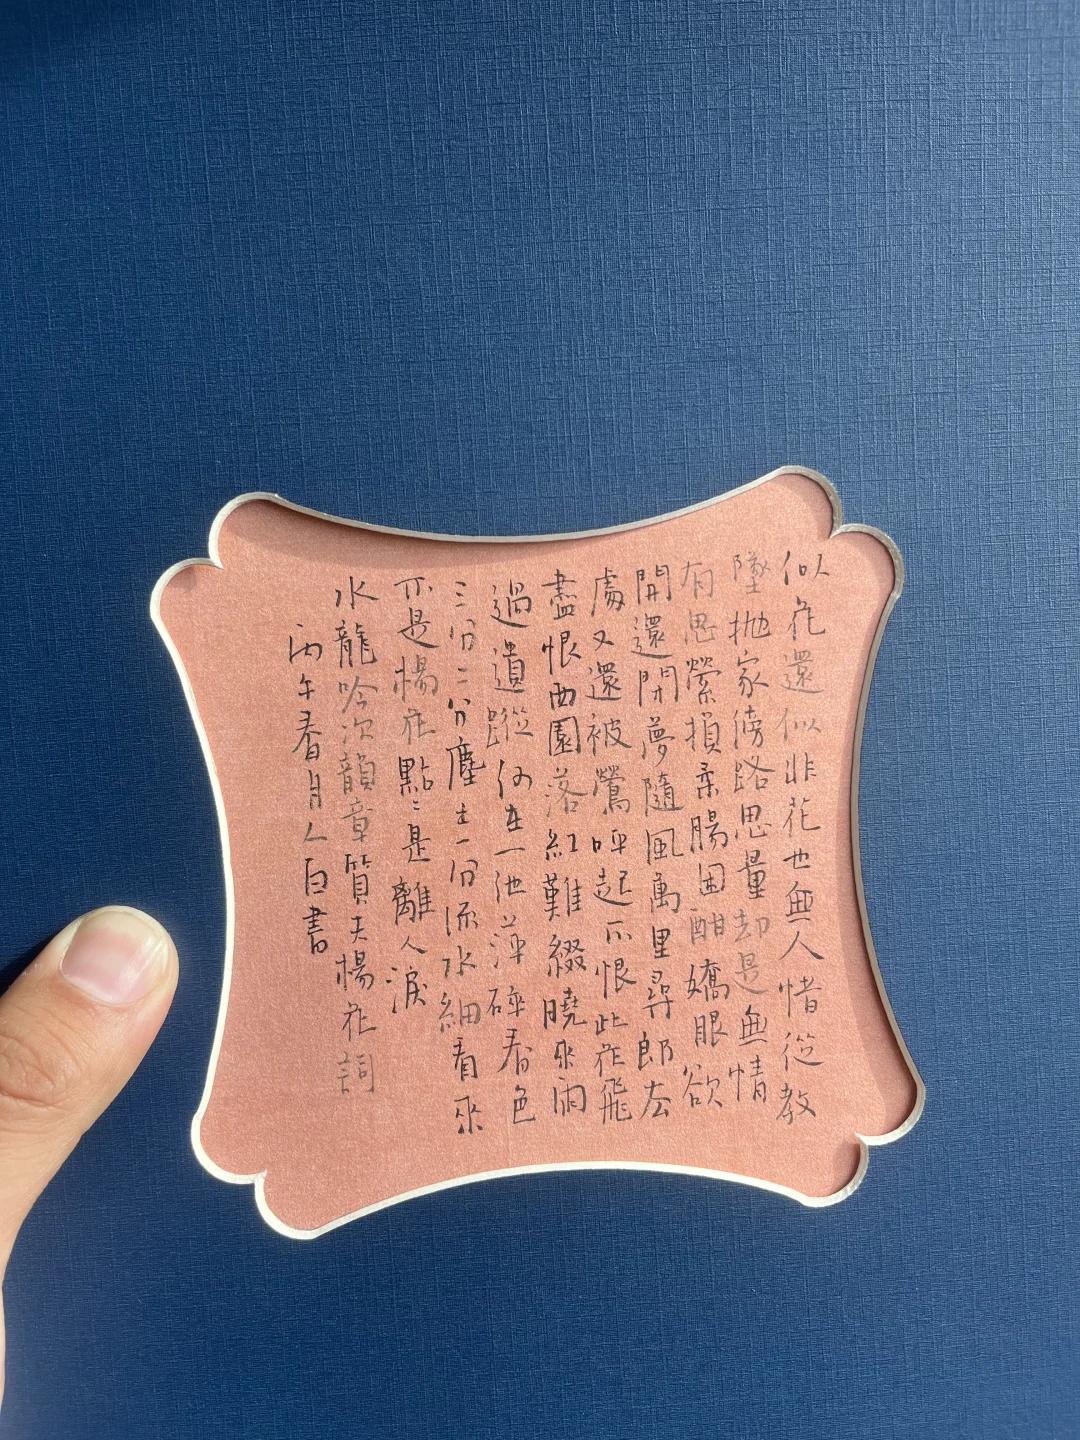 似花還似非花也無人惜從教
墜抛家傍路思量却是無情
有思縈損柔腸困酣嬌眼欲
開還閉夢隨風萬里尋郎去
處又還被鶯呼起不恨此花飛
盡恨西園落紅難綴曉來雨
過遺蹤何在一池萍碎春色
三分二分塵土一分流水細看來
不是楊花點〻是離人淚
水龍吟次韻章質夫楊花詞
丙午春月人白書